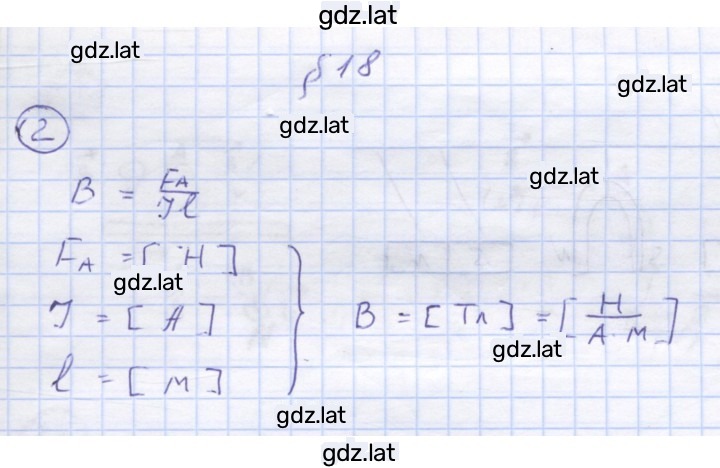 gdz.lat
gdz.lat
§ 18
gdz.lat
gdz.lat
2
gdz.lat
B = F_A / Iℓ
F_A = [ Н ]
gdz.lat
I = [ А ]
B = [ Тл ] = [ Н / А·м ]
gdz.lat
ℓ = [ м ]
gdz.lat
gdz.lat